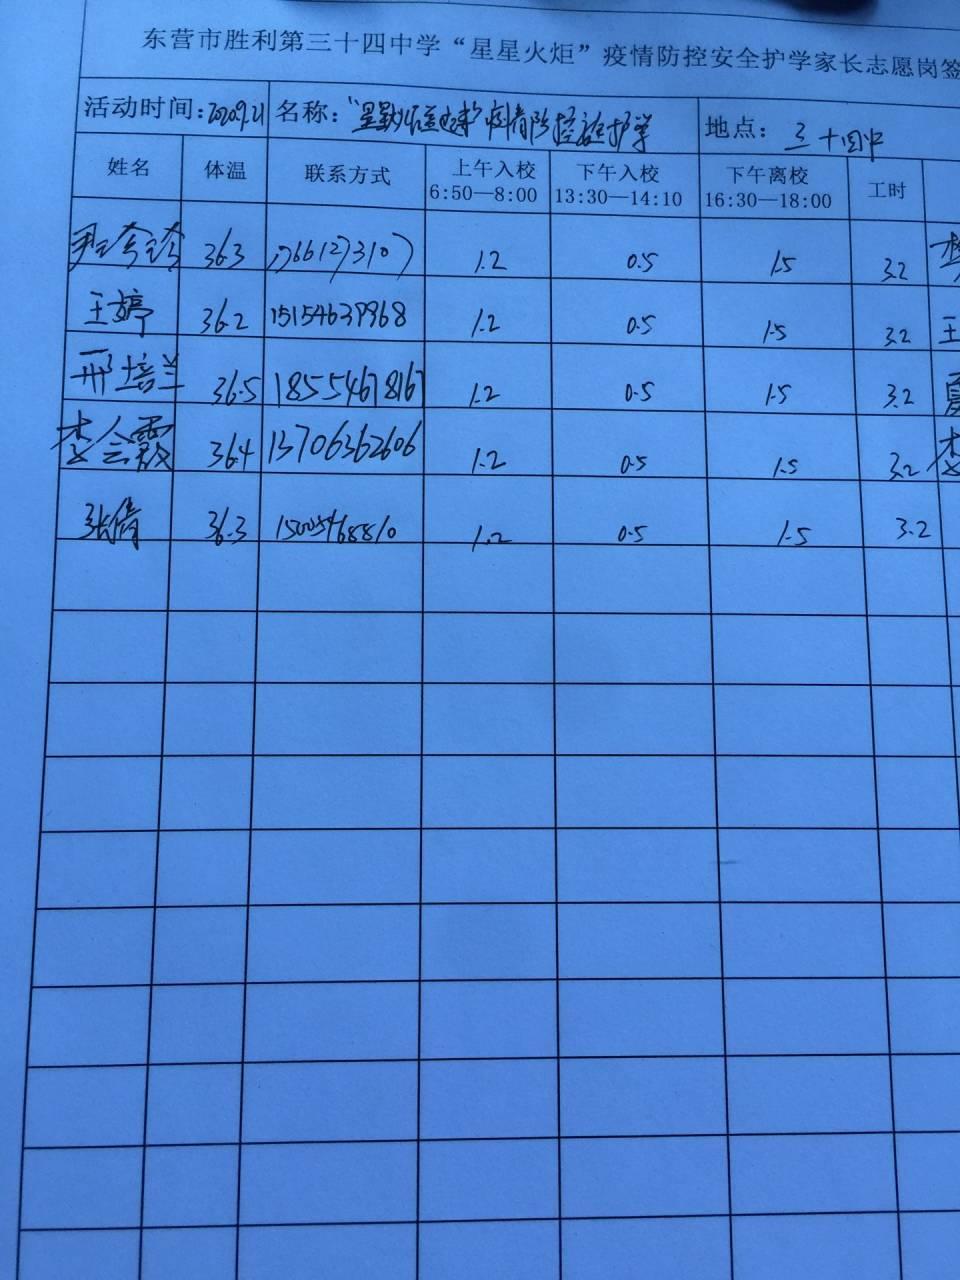 东营市胜利第三十四中学“星星火炬”疫情防控安全护学家长志愿岗签
活动时间：2020.9.21 名称： 疫情防控 护学 地点：三十四中
姓名 体温 联系方式 上午入校 6:50—8:00 下午入校 13:30—14:10 下午离校 16:30—18:00 工时
36.3 17661273107 1.2 0.5 1.5 3.2
王婷 36.2 15154639968 1.2 0.5 1.5 3.2 王
邢培兰 36.5 18554678167 1.2 0.5 1.5 3.2
李会霞 36.4 13706362606 1.2 0.5 1.5 3.2 李
张倩 36.3 15005468810 1.2 0.5 1.5 3.2